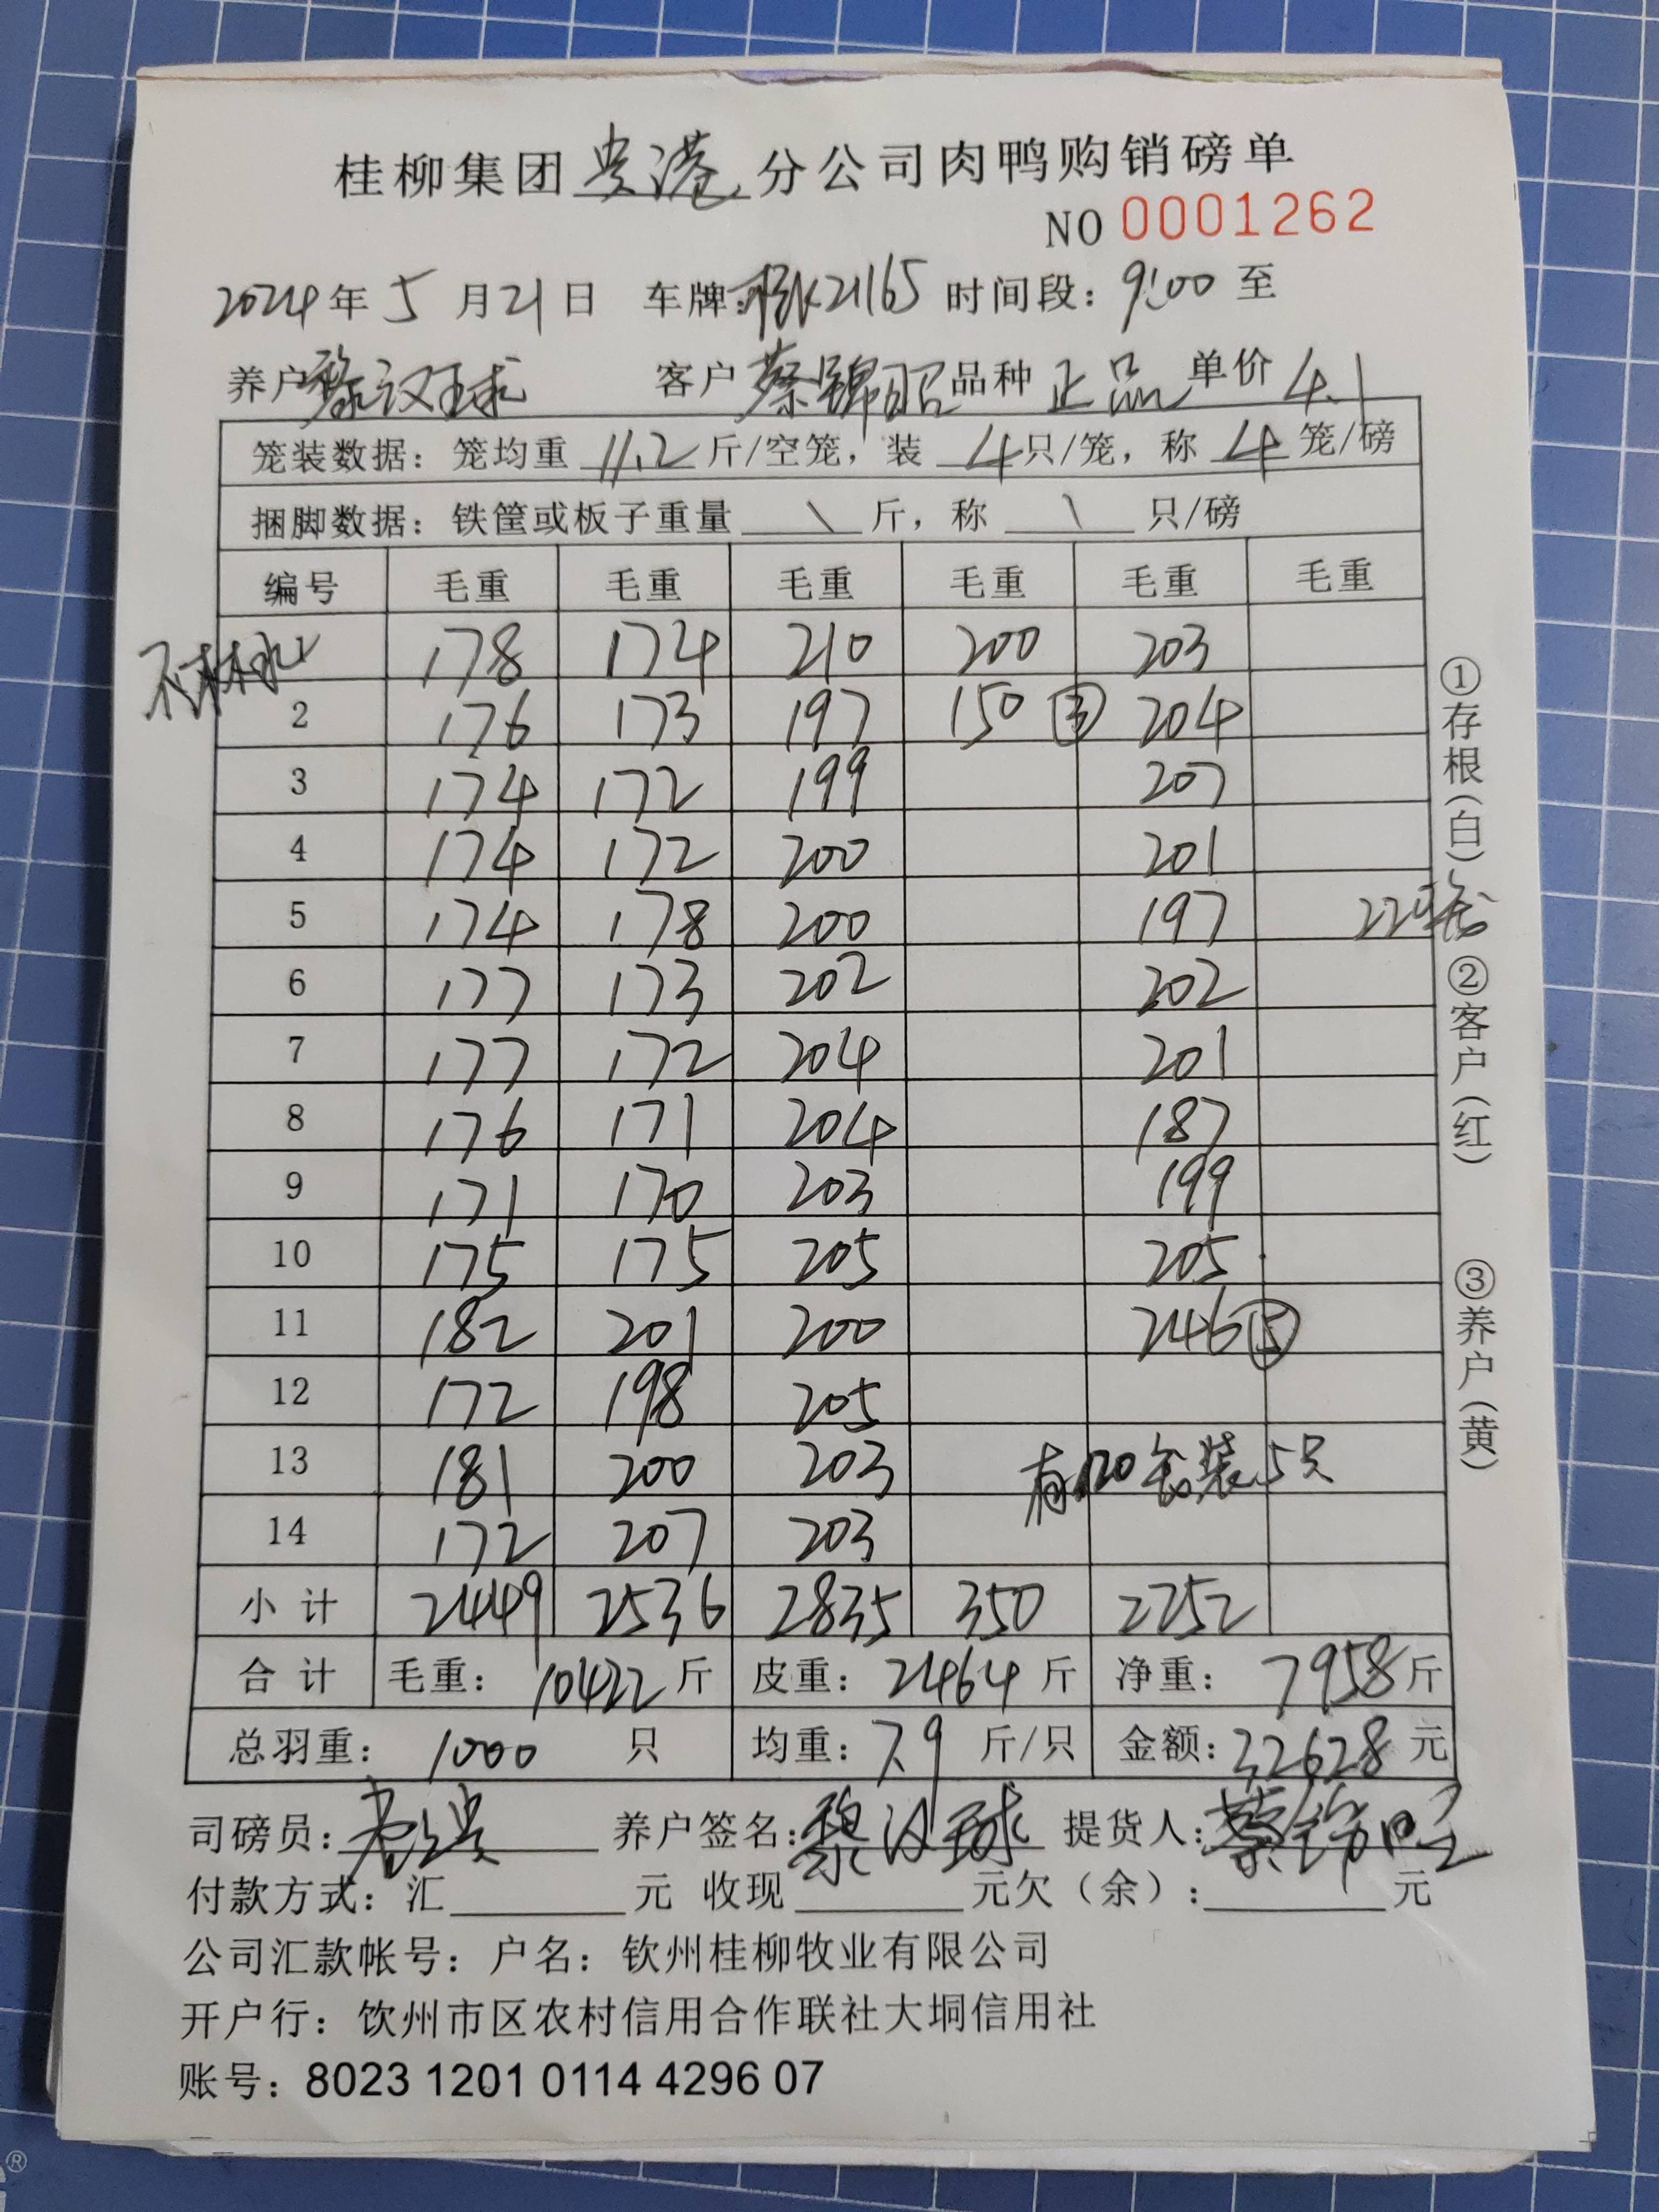 桂柳集团贵港分公司肉鸭购销磅单
NO 0001262
2024年5月21日 车牌:桂K21165 时间段:9:00至
养户黎汉球 客户蔡锦昭 品种正品 单价4.1
笼装数据:笼均重11.2斤/空笼,装4只/笼,称4笼/磅
捆脚数据:铁筐或板子重量\斤,称\只/磅
编号 毛重 毛重 毛重 毛重 毛重 毛重
不淋水 178 174 210 200 203
2 176 173 197 150③ 204
3 174 172 199 207
4 174 172 200 201
5 174 178 200 197 229
6 177 173 202 202
7 177 172 204 201
8 176 171 204 187
9 171 170 203 199
10 175 175 205 205
11 182 201 200 246⑤
12 172 198 205
13 181 200 203 有120 装5只
14 172 207 203
小计 2449 2536 2835 350 2252
合计 毛重:10422斤 皮重:2464斤 净重:7958斤
总羽重:1000只 均重:7.9斤/只 金额:32628元
司磅员: 养户签名:黎汉球 提货人:蔡锦昭
付款方式:汇 元 收现 元欠(余): 元
公司汇款帐号:户名:钦州桂柳牧业有限公司
开户行:饮州市区农村信用合作联社大垌信用社
账号:8023 1201 0114 4296 07
①存根(白)②客户(红) ③养户(黄)